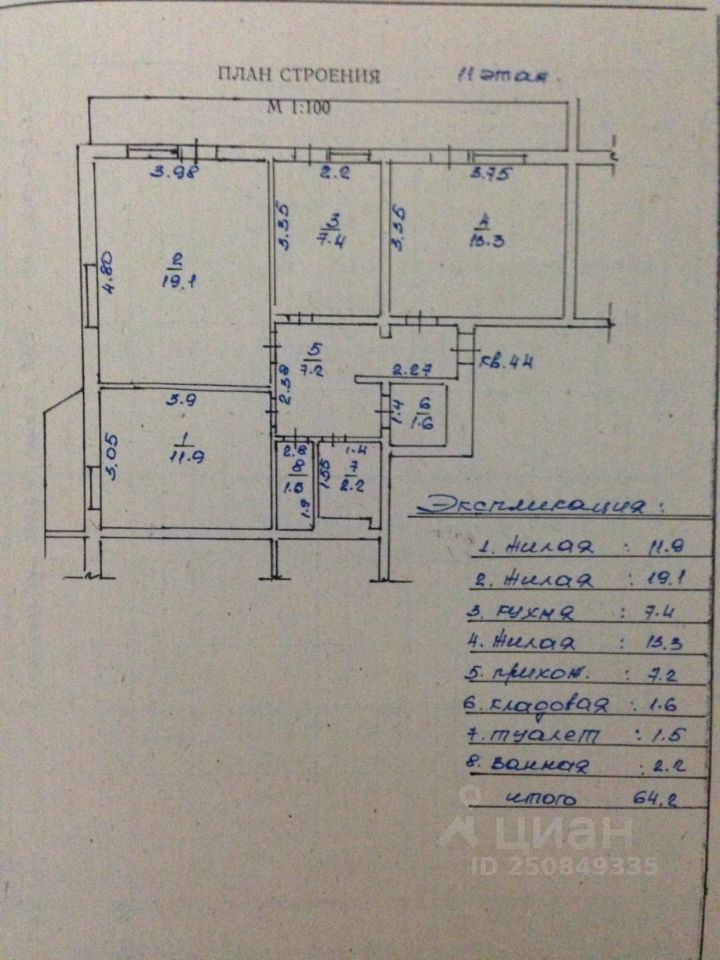 ПЛАН СТРОЕНИЯ
11 этаж.
М 1:100
3.98
2.2
3.75
4.80
2
19.1
3.35
3
7.4
3.35
4
13.3
5
7.2
2.39
2.27
кв.44
3.9
3.05
1
11.9
1.4
6
1.6
2.8
8
1.5
1.9
1.4
1.55
7
2.2
Экспликация:
1. Жилая : 11.9
2. Жилая : 19.1
3. кухня : 7.4
4. Жилая : 13.3
5. прихож. : 7.2
6. кладовая : 1.6
7. туалет : 1.5
8. ванная : 2.2
итого 64,2
циан
ID 250849335